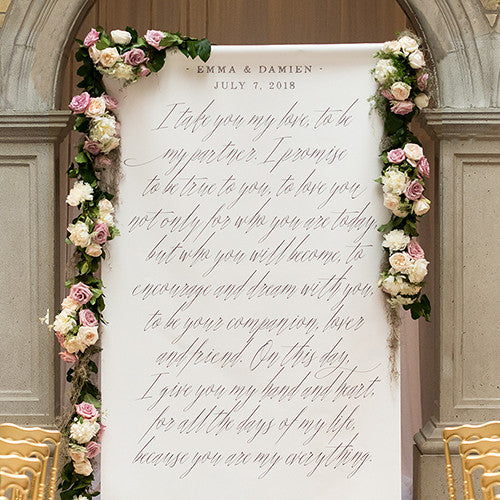 - EMMA & DAMIEN -
JULY 7, 2018
I take you my love, to be
my partner. I promise
to be true to you, to love you
not only for who you are today,
but who you will become, to
encourage and dream with you,
to be your companion, lover
and friend. On this day,
I give you my hand and heart,
for all the days of my life,
because you are my everything.